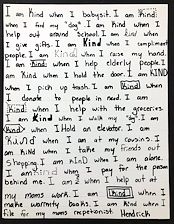 I am Kind when I babysit. I am Kind
when I find my "dog". I am Kind when I
help out around School. I am kind when
I give gifts. I am Kind when I
complement people. I am Kind when I raise my hand.
I am Kind when I help elderly people. I
am Kind when I hold the door. I am KIND
when I pick up trash. I am Kind when I
donate to people in need. I am
Kind when I help with the groceries.
I am Kind when I walk my dog. I am
Kind when I Hold an elevator. I am
Kind when I am at my cousins. I
am Kind when I take my friends out
shopping. I am kind when I am alone.
I am kind when I pay for the person
behind me. I am when I help out at
my moms work. I am Kind when I
make warranty books. I am Kind when I
file for my moms receptionist. Hendrick